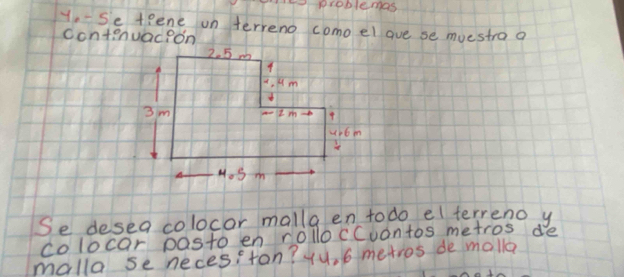 problemas
4.- Se tiene un terreno como el que se muestra a
continuación
2.5 m
1.4 m
3 m
2 m
1.6 m
4.5 m
Se desea colocar malla en todo el terreno y
colocar pasto en rollo ¿Cuántos metros de
malla se necesitan? 14.6 metros de malla